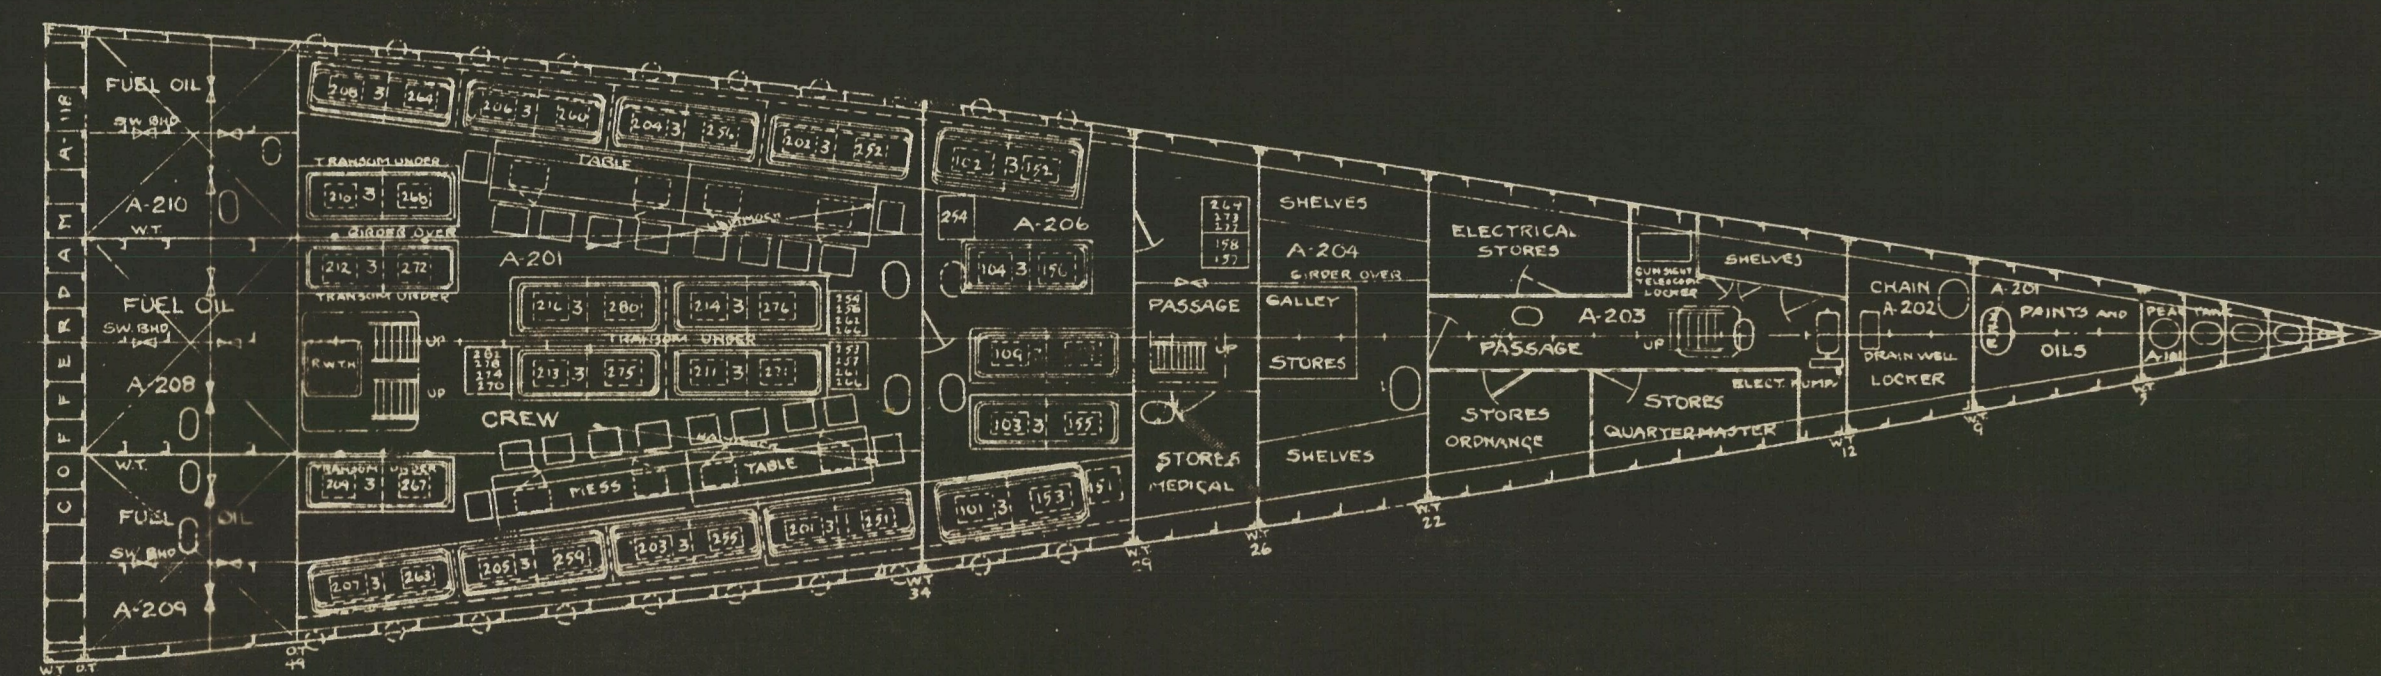 COFFERDAM A-118
FUEL OIL
SW. BHD
A-210
W.T.
FUEL OIL
SW. BHD
A-208
W.T.
FUEL OIL
SW. BHD
A-209
W.T. O.T.
O.T.
49
208 3 264
206 3 260
204 3 256
202 3 252
TRANSOM UNDER
210 3 268
GIRDER OVER
212 3 272
TRANSOM UNDER
TABLE
HAMMOCK
A-201
216 3 280
214 3 276
254
258
262
266
TRANSOM UNDER
213 3 275
211 3 271
282
278
274
270
R.W.T.H.
UP
UP
CREW
HAMMOCK
MESS TABLE
TRANSOM UNDER
209 3 267
207 3 263
205 3 259
203 3 255
201 3 251
W.T.
34
102 3 152
254
A-206
104 3 156
103 3 155
101 3 153
151
W.T.
29
264
273
277
158
157
PASSAGE
UP
STORES
MEDICAL
W.T.
26
SHELVES
A-204
GIRDER OVER
GALLEY
STORES
SHELVES
W.T.
22
ELECTRICAL
STORES
GUN SIGHT
TELESCOPE
LOCKER
SHELVES
A-203
PASSAGE
UP
ELECT. PUMP
STORES
ORDNANCE
STORES
QUARTERMASTER
W.T.
12
CHAIN
A-202
DRAIN WELL
LOCKER
W.T.
9
A-201
PAINTS AND
OILS
W.T.
5
PEAK TANK
A-101